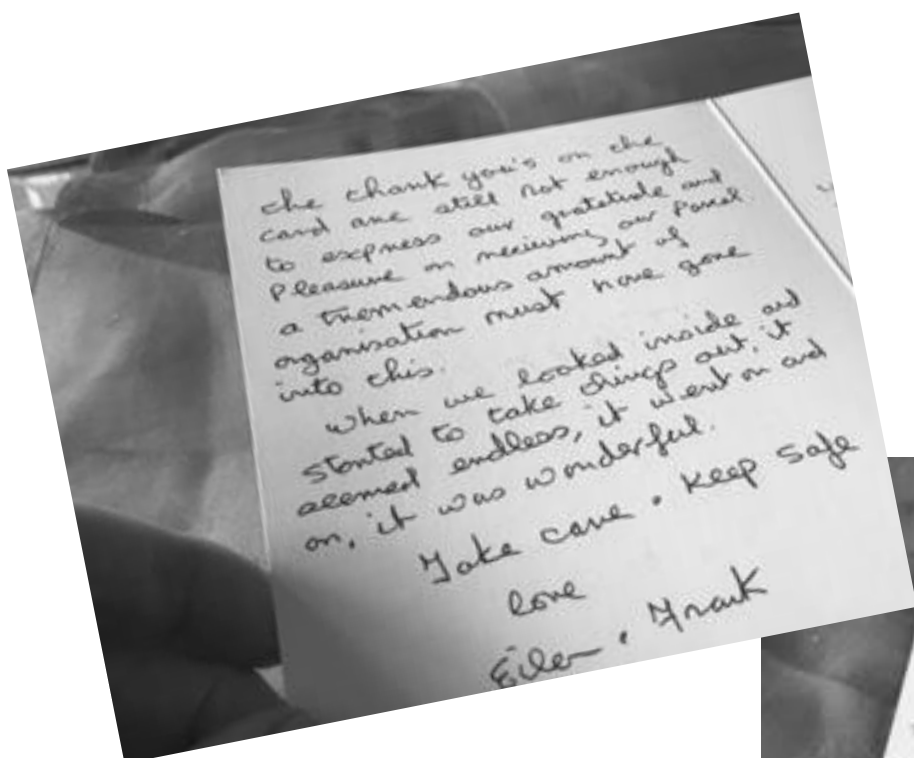 the thank you's on the
card are still not enough
to express our gratitude and
Pleasure on recieving our Parcel
a tremendous amount of
organisation must have gone
into this.
When we looked inside and
started to take things out, it
seemed endless, it went on and
on, it was wonderful.
Take care . Keep Safe
love
Frank